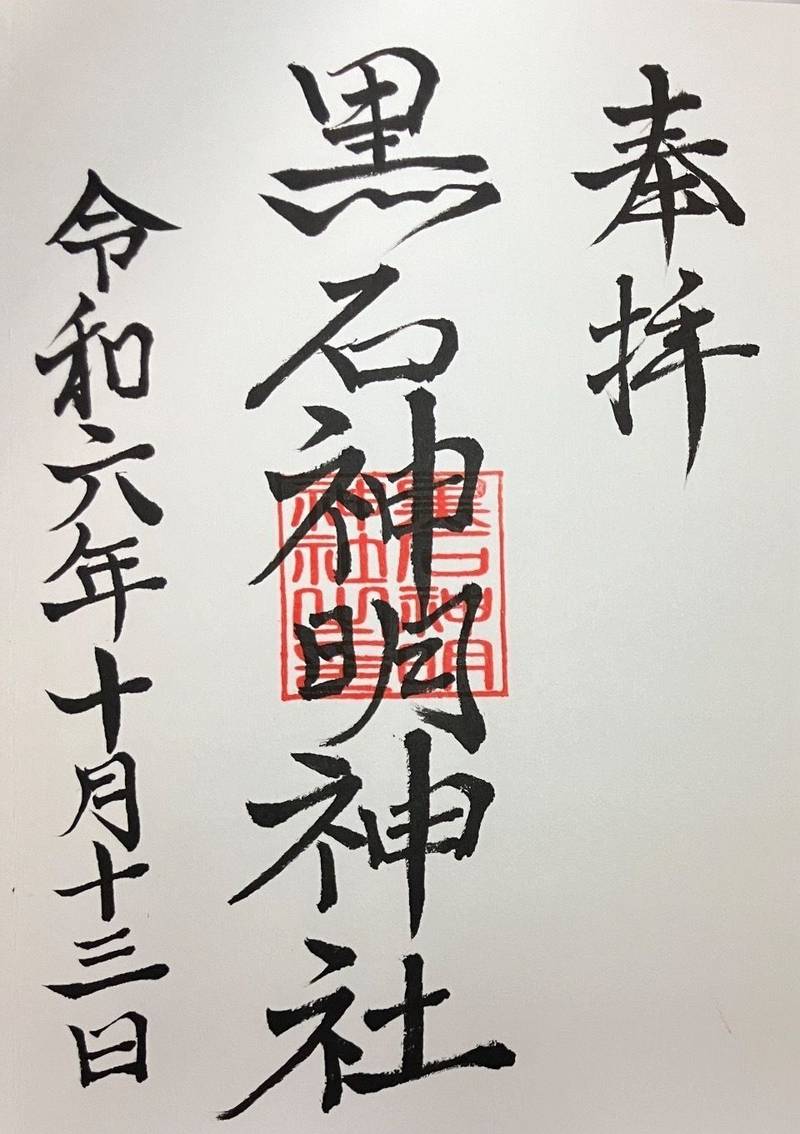 奉拝
黒石神明神社
黒石神明
神社之璽
令和六年十月十三日